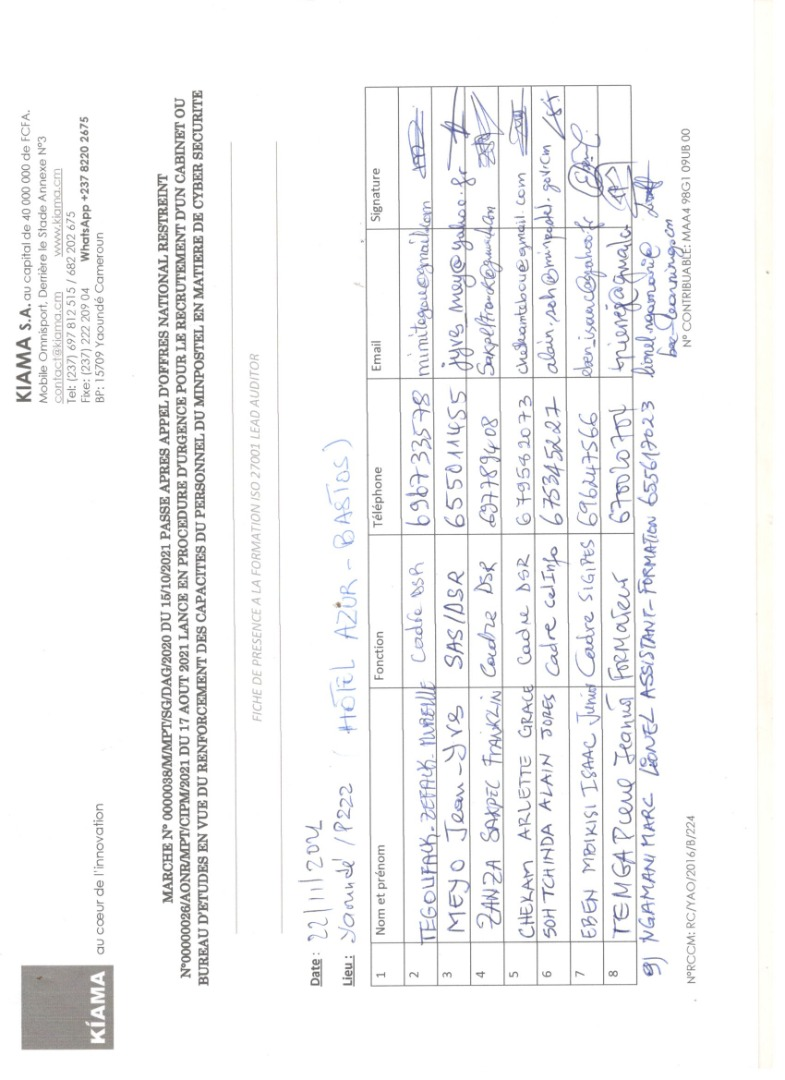 KIAMA
au cœur de l'innovation
KIAMA S.A. au capital de 40 000 000 de FCFA.
Mobile Omnisport, Derrière le Stade Annexe N°3
contact@kiama.cm www.kiama.cm
Tel: (237) 697 812 515 / 682 202 675
Fixe: (237) 222 209 04 WhatsApp +237 8220 2675
BP: 15709 Yaoundé Cameroun
MARCHE N° 0000038/M/MPT/SG/DAG/2020 DU 15/10/2021 PASSE APRES APPEL D'OFFRES NATIONAL RESTREINT
N°00000026/AONR/MPT/CIPM/2021 DU 17 AOUT 2021 LANCE EN PROCEDURE D'URGENCE POUR LE RECRUTEMENT D'UN CABINET OU
BUREAU D'ETUDES EN VUE DU RENFORCEMENT DES CAPACITES DU PERSONNEL DU MINPOSTEL EN MATIERE DE CYBER SECURITE
FICHE DE PRESENCE A LA FORMATION ISO 27001 LEAD AUDITOR
Date : 22/11/2021
Lieu : Yaoundé / P222 ( HOTEL AZUR - BASTOS )
1 Nom et prénom Fonction Téléphone Email Signature
2 TEGOUFACK ZEFACK MUREILLE Cadre DSR 696733578
3 MEYO Jean-Yves SAS/DSR 655011455 jyves_mey@yahoo.fr
4 ZANZA SAKPEC FRANKLIN Cadre DSR 697789408
5 CHEKAM ARLETTE GRACE Cadre DSR 679582073
6 SOH TCHINDA ALAIN JORES Cadre Cel Info 675345227 alain.soh@minpostel.gov.cm
7 EBEN MBIKISI ISAAC Junior Cadre SIGIPES 696247566 eben_isaac@yahoo.fr
8 TEMGA Pierre FORMATEUR
9) NGAMANI MARC LIONEL ASSISTANT-FORMATION 655617023
N°RCCM: RC/YAO/2016/B/224 N° CONTRIBUABLE: MAA4 98G1 09UB 00